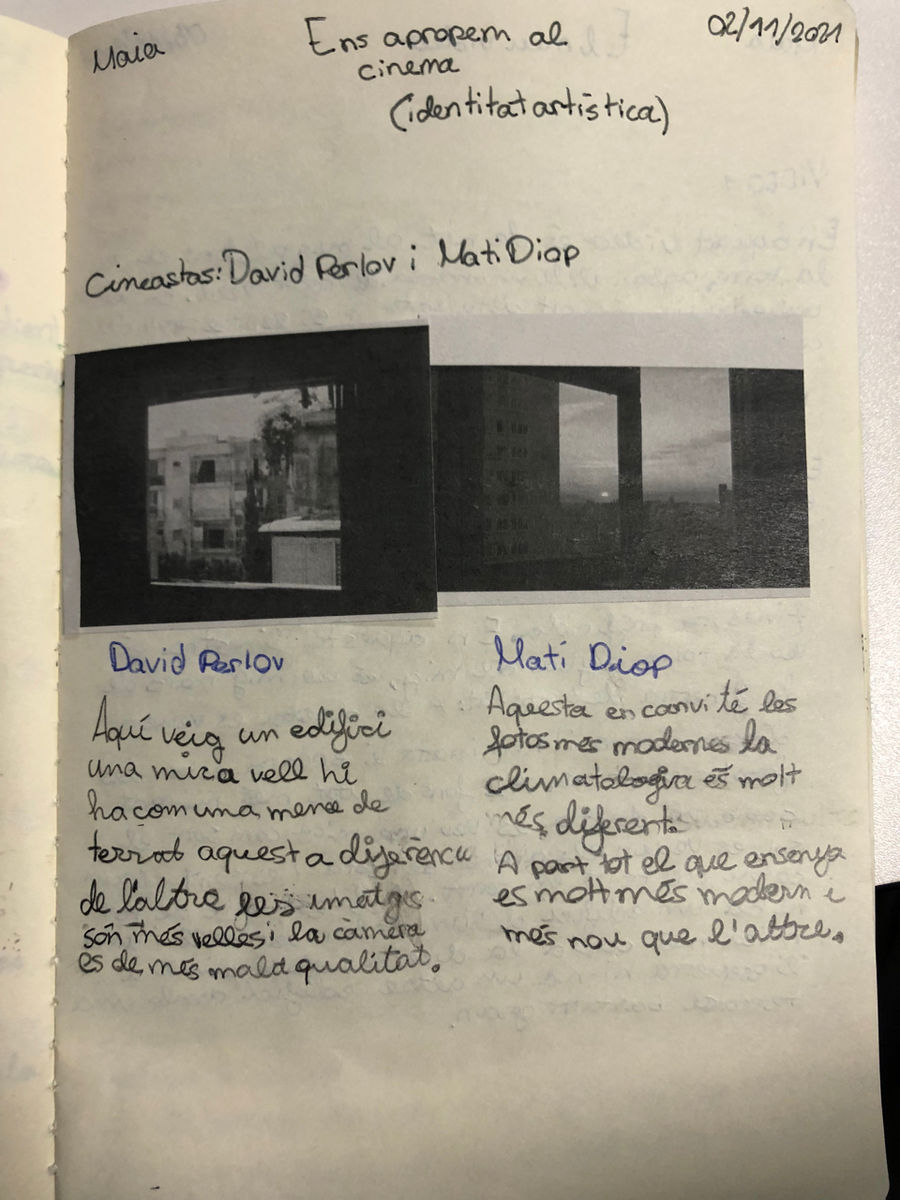 Maia
Ens apropem al
cinema
(identitat artística)
02/11/2021
Cineastas: David Perlov i Mati Diop
David Perlov
Aquí veig un edifici
una mica vell hi
ha com una mena de
terrat aquest a diferència
de l'altre les imatges
són més velles i la càmera
es de més mala qualitat.
Mati Diop
Aquesta en canvi té les
fotos mes modernes la
climatologia és molt
més diferent.
A part tot el que ensenya
es molt més modern i
més nou que l'altre.